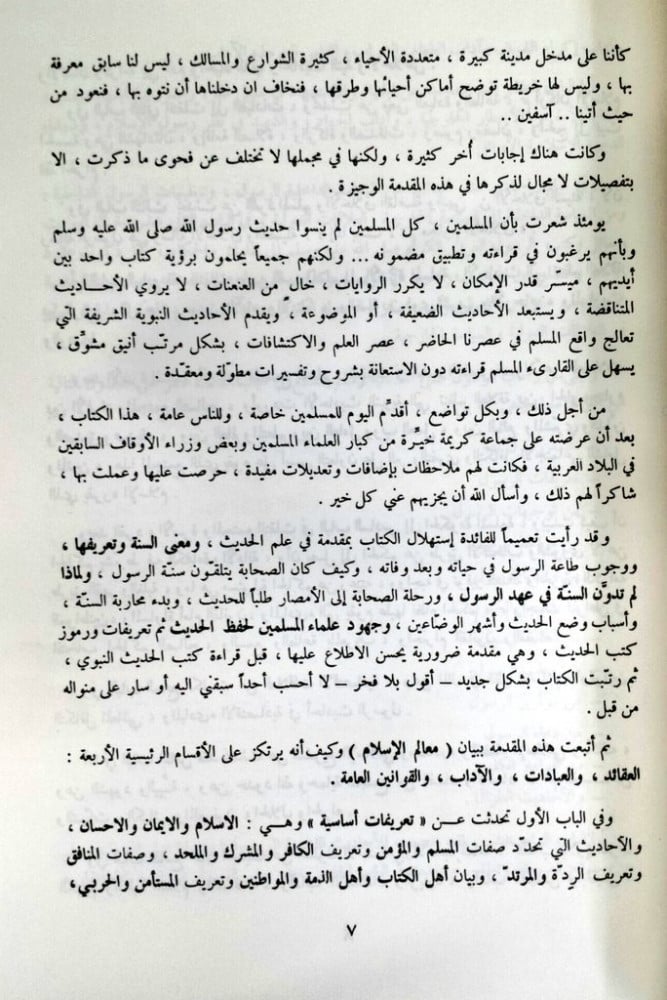 كأننا على مدخل مدينة كبيرة ، متعددة الأحياء ، كثيرة الشوارع والمسالك ، ليس لنا سابق معرفة
بها ، وليس لها خريطة توضح أماكن أحيائها وطرقها ، فنخاف ان دخلناها أن نتوه بها ، فنعود من
حيث أتينا .. آسفين ..
وكانت هناك إجابات أُخر كثيرة ، ولكنها في مجملها لا تختلف عن فحوى ما ذكرت ، الا
بتفصيلات لا مجال لذكرها في هذه المقدمة الوجيزة .
يومئذ شعرت بأن المسلمين ، كل المسلمين لم ينسوا حديث رسول الله صلى الله عليه وسلم
وبأنهم يرغبون في قراءته وتطبيق مضمونه ... ولكنهم جميعاً يحلمون برؤية كتاب واحد بين
أيديهم ، ميسّر قدر الإمكان ، لا يكرر الروايات ، خال من العنعنات ، لا يروي الأحـاديث
المتناقضة ، ويستبعد الأحاديث الضعيفة ، أو الموضوعة ، ويقدم الأحاديث النبوية الشريفة التي
تعالج واقع المسلم في عصرنا الحاضر ، عصر العلم والاكتشافات ، بشكل مرتّب أنيق مشوّق ،
يسهل على القارىء المسلم قراءته دون الاستعانة بشروح وتفسيرات مطوّلة ومعقدة .
من أجل ذلك ، وبكل تواضع ، أقدّم اليوم للمسلمين خاصة ، وللناس عامة ، هذا الكتاب ،
بعد أن عرضته على جماعة كريمة خيّرة من كبار العلماء المسلمين وبعض وزراء الأوقاف السابقين
في البلاد العربية ، فكانت لهم ملاحظات بإضافات وتعديلات مفيدة ، حرصت عليها وعملت بها ،
شاكراً لهم ذلك ، وأسأل الله أن يجزيهم عني كل خير .
و قد رأيت تعميماً للفائدة إستهلال الكتاب بمقدمة في علم الحديث ، ومعنى السنة وتعريفها ،
ووجوب طاعة الرسول في حياته وبعد وفاته ، وكيف كان الصحابة يتلقّون سنّة الرسول ، ولماذا
لم تدوَّن السنّة في عهد الرسول ، ورحلة الصحابة إلى الأمصار طلباً للحديث ، وبدء محاربة السنّة ،
وأسباب وضع الحديث وأشهر الوضّاعين ، وجهود علماء المسلمين لحفظ الحديث ثم تعريفات ورموز
كتب الحديث ، وهي مقدمة ضرورية يحسن الاطلاع عليها ، قبل قراءة كتب الحديث النبوي ،
ثم رتّبت الكتاب بشكل جديد – أقول بلا فخر – لا أحسب أحداً سبقني اليه أو سار على منواله
من قبل .
ثم أتبعت هذه المقدمة ببيان ( معالم الإسلام ) وكيف أنه يرتكز على الأقسام الرئيسية الأربعة :
العقائد ، والعبادات ، والآداب ، والقوانين العامة .
وفي الباب الأول تحدثت عـن « تعريفات أساسية » وهـي : الاسلام والايمان والاحسان ،
والأحاديث التي تحدّد صفات المسلم والمؤمن وتعريف الكافر والمشرك والملحد ، وصفات المنافق
وتعريف الردّة والمرتدّ ، وبيان أهل الكتاب وأهل الذمة والمواطنين وتعريف المستأمن والحربي،
٧